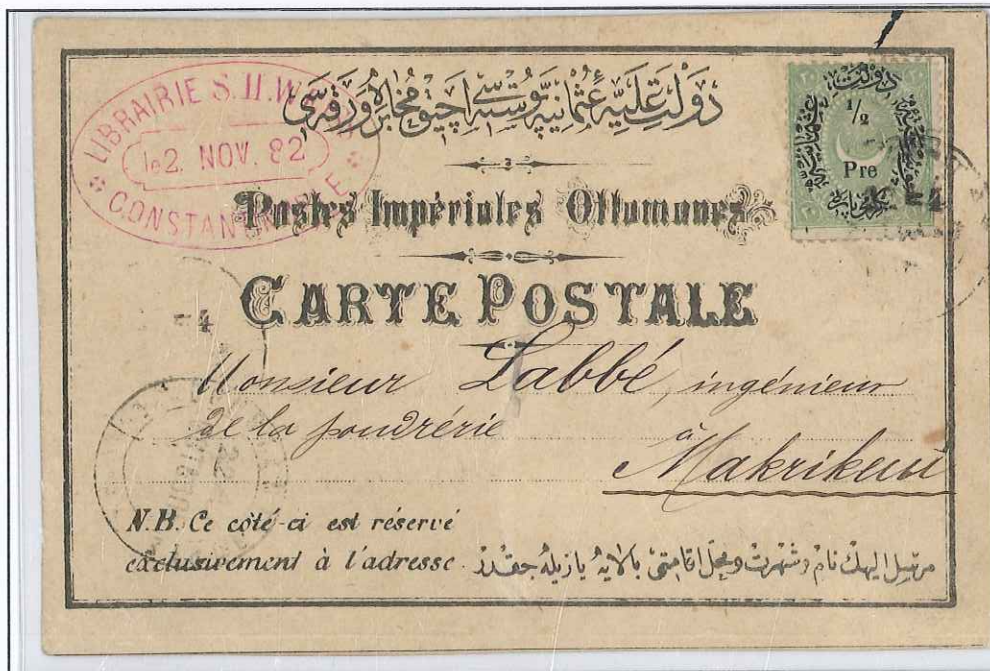 LIBRAIRIE S. H. W
le 2. NOV. 82
CONSTANTINOPLE
دولت عليه عثمانيه پوسته سی آچيق مخابره ورقه سی
Postes Impériales Ottomanes
CARTE POSTALE
دولت
1/2
Pre
Monsieur Labbé, ingénieur
de la poudrérie
à
Makrikeui
N.B. Ce côté-ci est réservé
exclusivement à l'adresse.
مرسل اليهك نام و شهرت و محل اقامتی بالايه يازيله جقدر